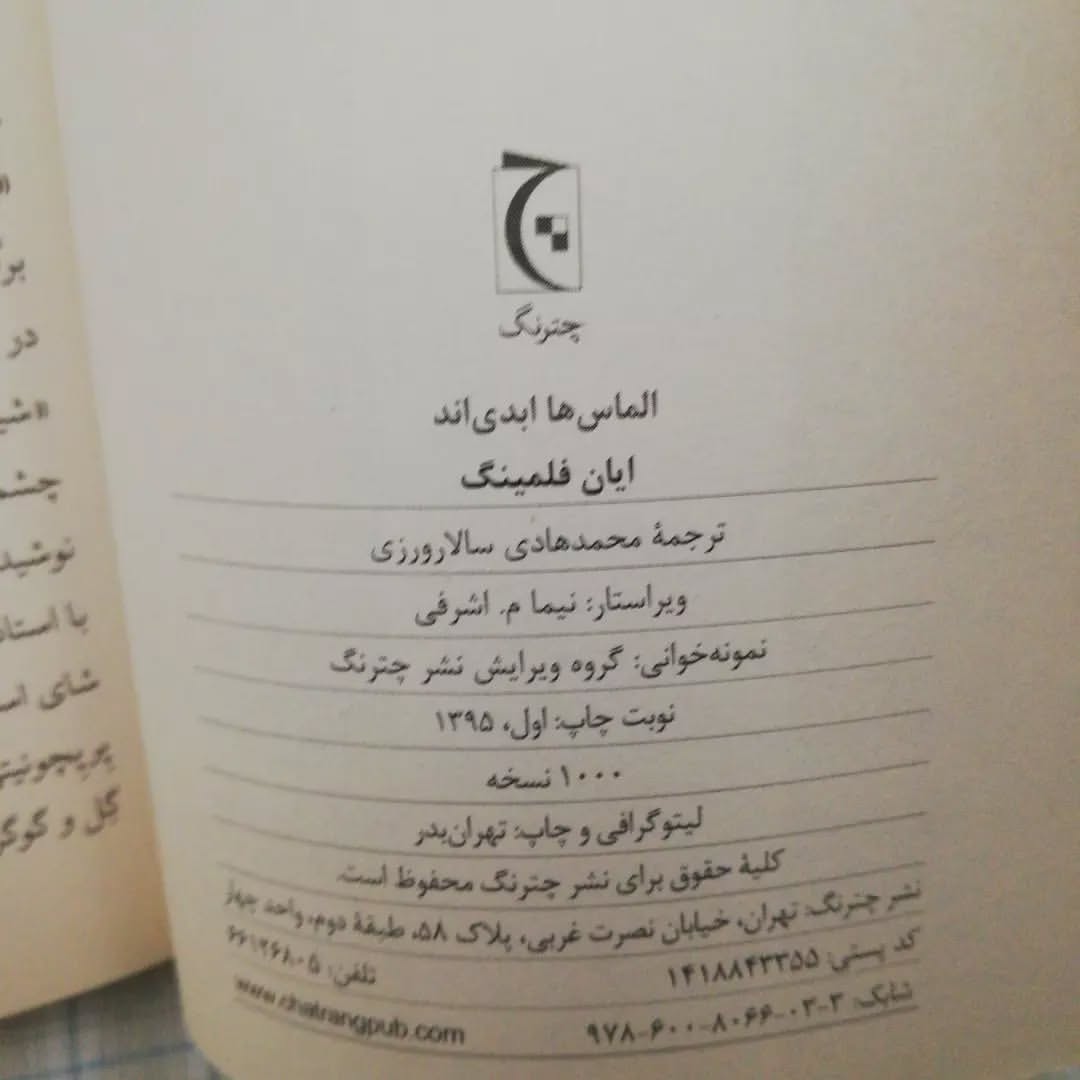 چترنگ
الماس‌ها ابدی‌اند
ایان فلمینگ
ترجمهٔ محمدهادی سالارورزی
ویراستار: نیما م. اشرفی
نمونه‌خوانی: گروه ویرایش نشر چترنگ
نوبت چاپ: اول، ۱۳۹۵
۱۰۰۰ نسخه
لیتوگرافی و چاپ: تهران‌بدر
کلیهٔ حقوق برای نشر چترنگ محفوظ است.
نشر چترنگ: تهران، خیابان نصرت غربی، پلاک ۵۸، طبقهٔ دوم، واحد چهار
کد پستی: ۱۴۱۸۸۴۳۳۵۵ تلفن:
شابک: ۳-۰۳-۸۰۶۶-۶۰۰-۹۷۸ www.chatrangpub.com
در
چشم
نوشید
با استاد
شای اس
گل و کوگر